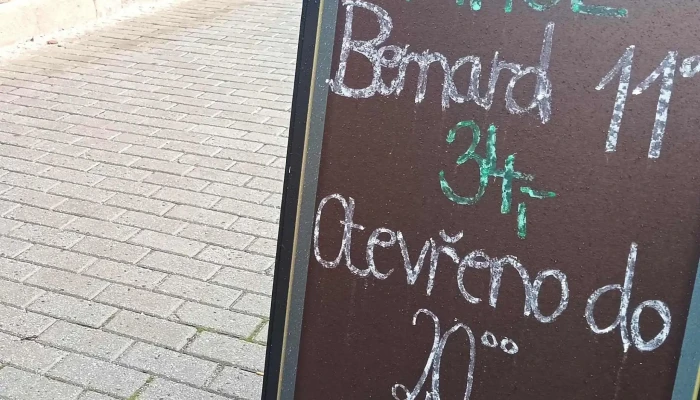 Bernard 11°
34,-
Otevřeno do
20⁰⁰